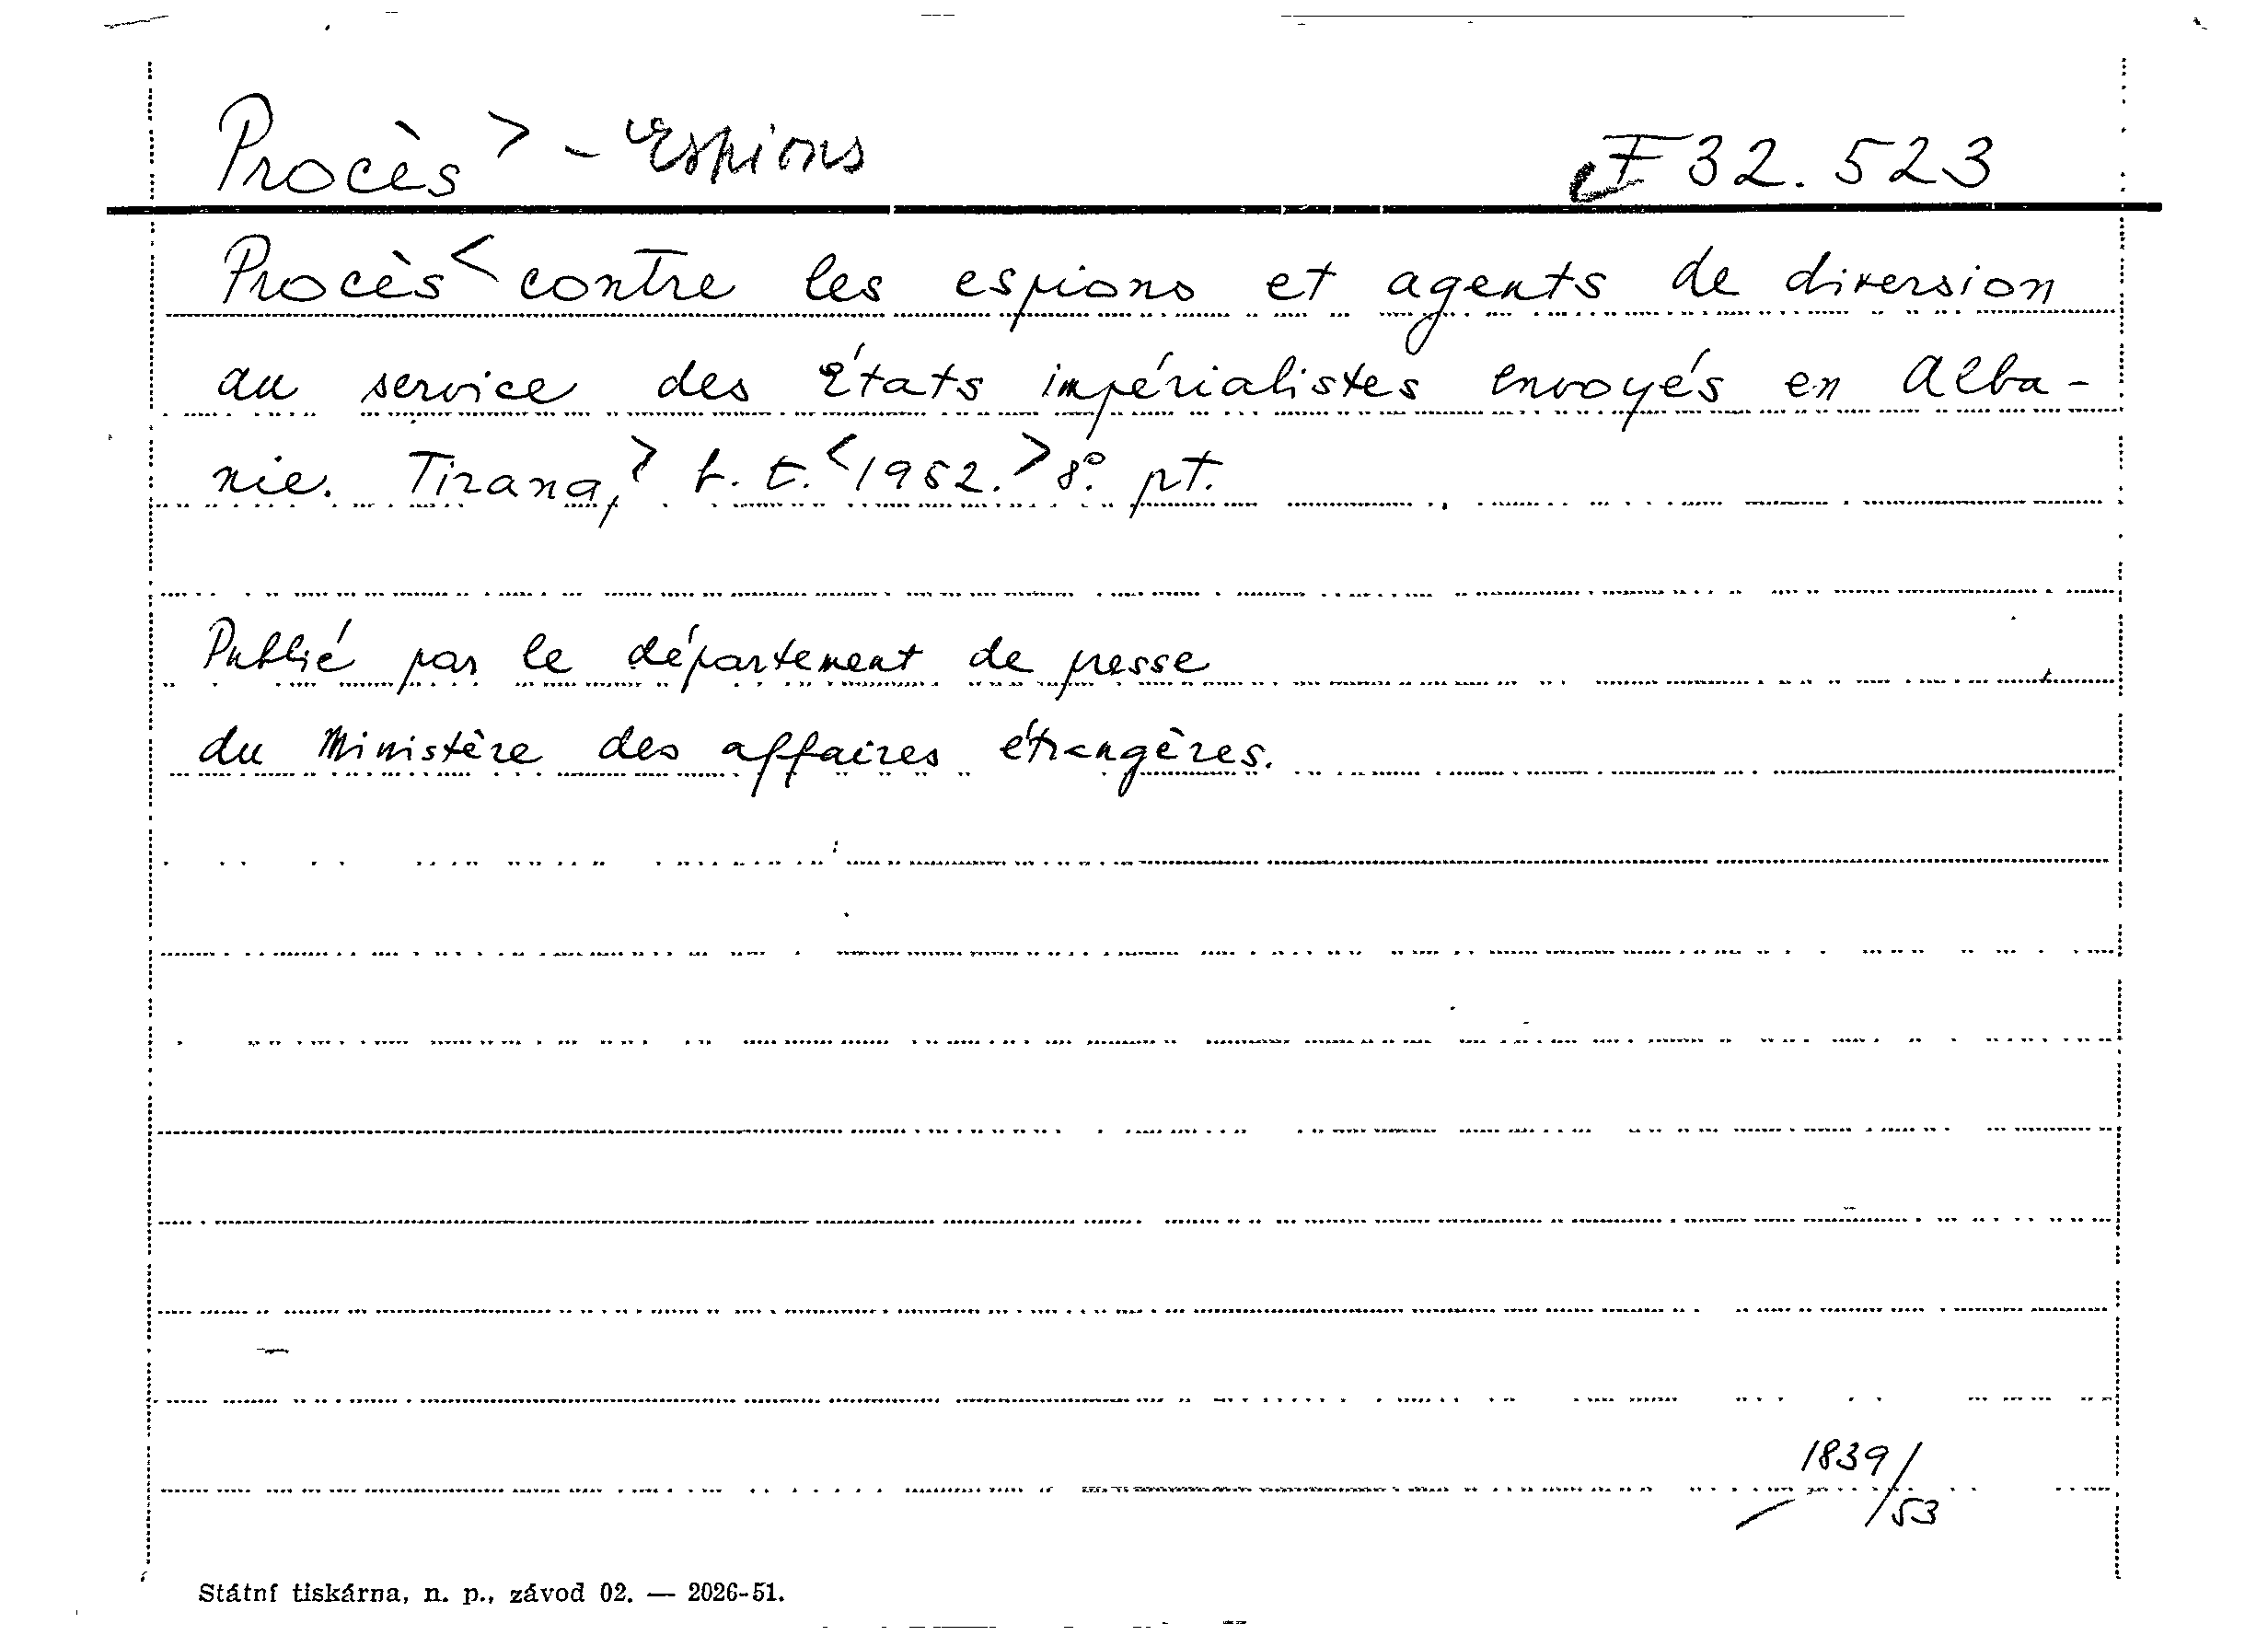 Procès > - Espions F 32.523
Procès < contre les espions et agents de diversion
au service des États impérialistes envoyés en Alba-
nie. Tirana, > t. t. < 1952. > 8°. pt.
Publié par le département de presse
du Ministère des affaires étrangères.
1839/53
Státní tiskárna, n. p., závod 02. — 2026-51.